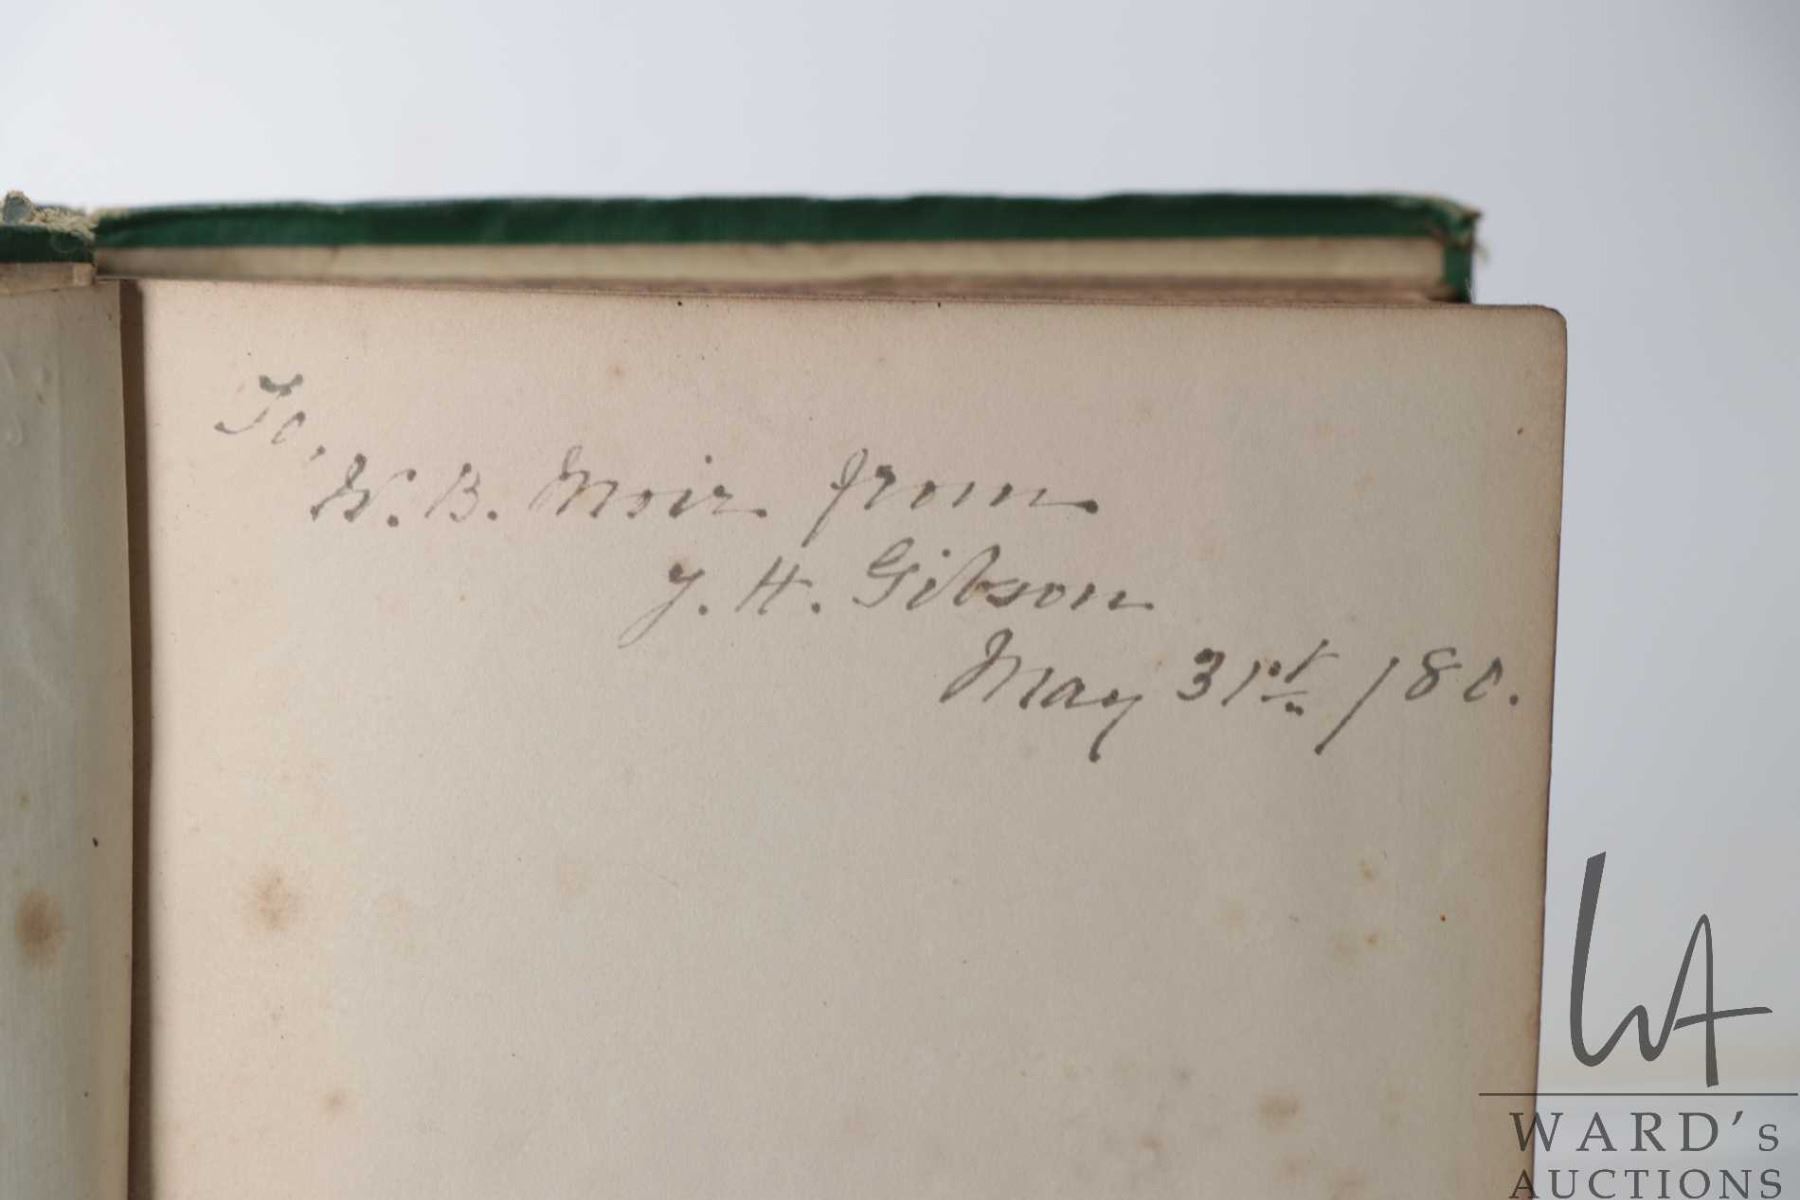 To,
W. B. Moir from
J. H. Gibson
May 31st /80.
WA
WARD's
AUCTIONS